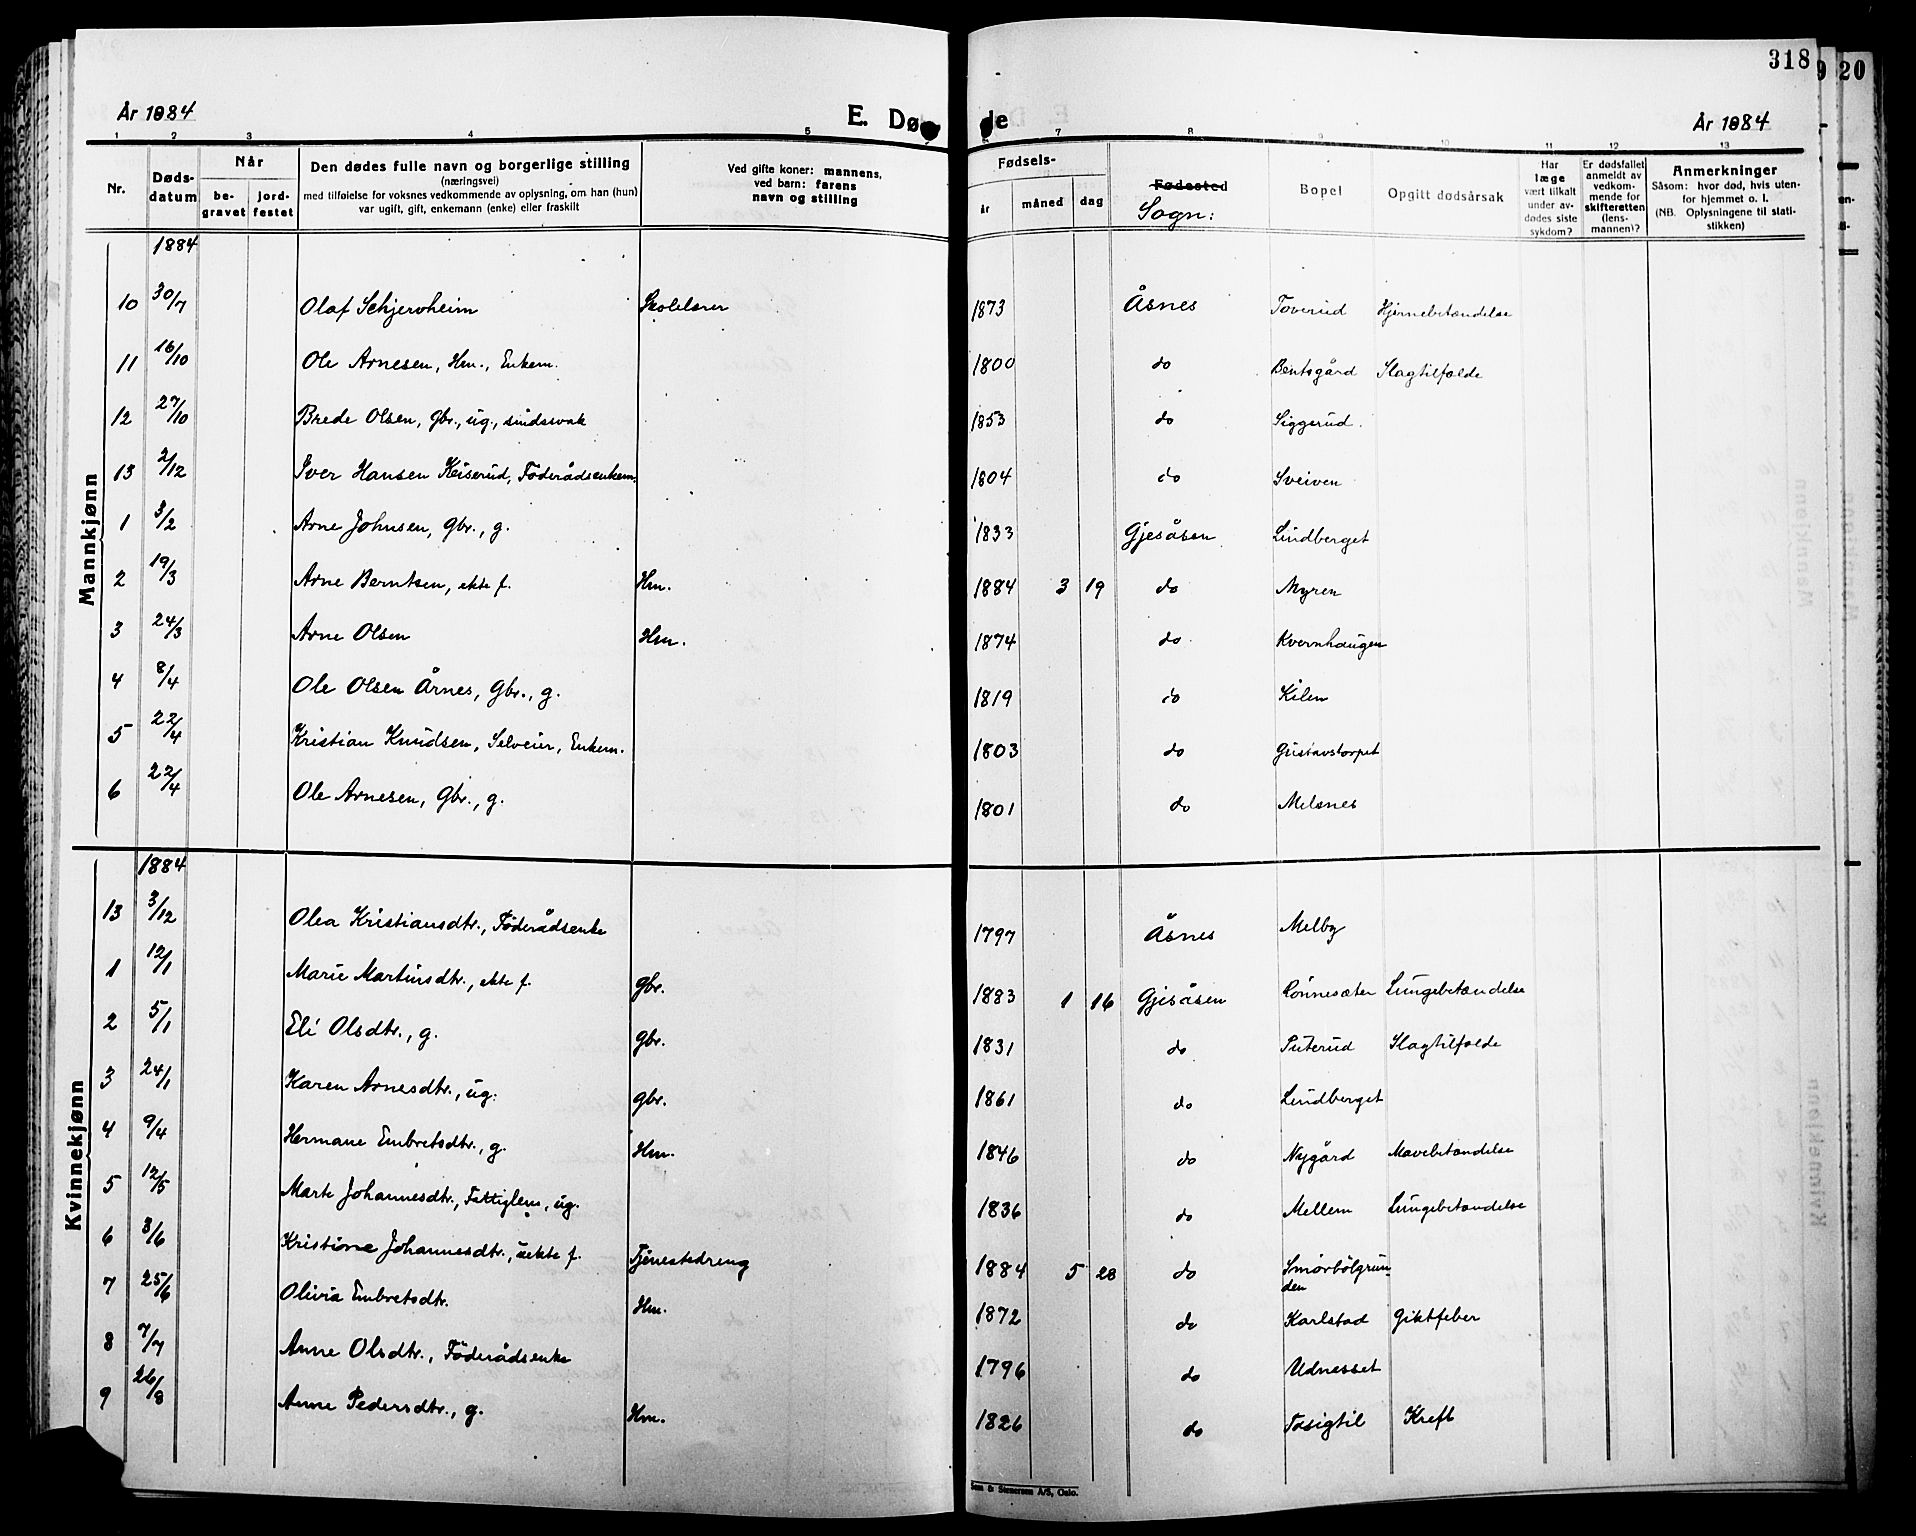 318
20
År 1884
E. Dø de
År 1884
1 2 3 4 5 7 8 9 10 11 12 13
Nr. Dødsdatum Når begravet jordfestet
Den dødes fulle navn og borgerlige stilling
(næringsvei)
med tilføielse for voksnes vedkommende av oplysning, om han (hun)
var ugift, gift, enkemann (enke) eller fraskilt
Ved gifte koner: mannens,
ved barn: farens
navn og stilling
Fødsels-
år måned dag
Fødested
Sogn:
Bopel
Opgitt dødsårsak
Har
læge
vært tilkalt
under av-
dødes siste
sykdom?
Er dødsfallet
anmeldt av
vedkom-
mende for
skifteretten
(lens-
mannen)?
Anmerkninger
Såsom: hvor død, hvis uten-
for hjemmet o. l.
(NB. Oplysningene til stati-
stikken)
Mannkjønn
1884
10 30/7 Olaf Schjervheim Skolelærer 1873 Åsnes Toverud Hjernebetændelse
11 16/10 Ole Arnesen, Hm., Enkem. 1800 do Bentsgård Slagtilfælde
12 27/10 Brede Olsen, Gbr., ug., sindssvak 1853 do Siggerud.
13 2/12 Iver Hansen Keiserud, Föderådsenkem. 1804 do Sveiven
1 3/2 Arne Johnsen, Gbr., g. 1833 Gjesåsen Lindberget
2 19/3 Arne Berntsen, ekte f. Hm. 1884 3 19 do Myren
3 24/3 Arne Olsen Hm. 1874 do Kvernhaugen
4 8/4 Ole Olsen Årnes, Gbr., g. 1819 do Kilen
5 22/4 Kristian Knudsen, Selveier, Enkem. 1803 do Gustavstorpet
6 22/4 Ole Arnesen, Gbr., g. 1801 do Melsnes
Kvinnekjønn
1884
13 3/12 Olea Kristiansdtr., Föderådsenke 1797 Åsnes Melby
1 12/1 Marie Martinsdtr., ekte f. Gbr. 1883 1 16 Gjesåsen Rönnesæter Lungebetændelse
2 5/1 Eli Olsdtr., g. Gbr. 1831 do Puterud Slagtilfælde
3 24/1 Karen Arnesdtr., ug. Gbr. 1861 do Lindberget
4 9/4 Hermane Embretsdtr., g. Hm. 1846 do Nygård Mavebetændelse
5 12/5 Marte Johannesdtr., Fattiglem, ug. 1836 do Mellem Lungebetændelse
6 3/6 Kristine Johannesdtr., uekte f. Tjenestedreng 1884 5 28 do Smörbölgrun-
den
7 25/6 Olivia Embretsdtr. Hm. 1872 do Karlstad Giktfeber
8 7/7 Anne Olsdtr., Föderådsenke 1796 do Udnesset
9 26/8 Anne Pedersdtr., g. Hm. 1826 do Tasigtil Kreft
Sem & Stenersen A/S, Oslo.